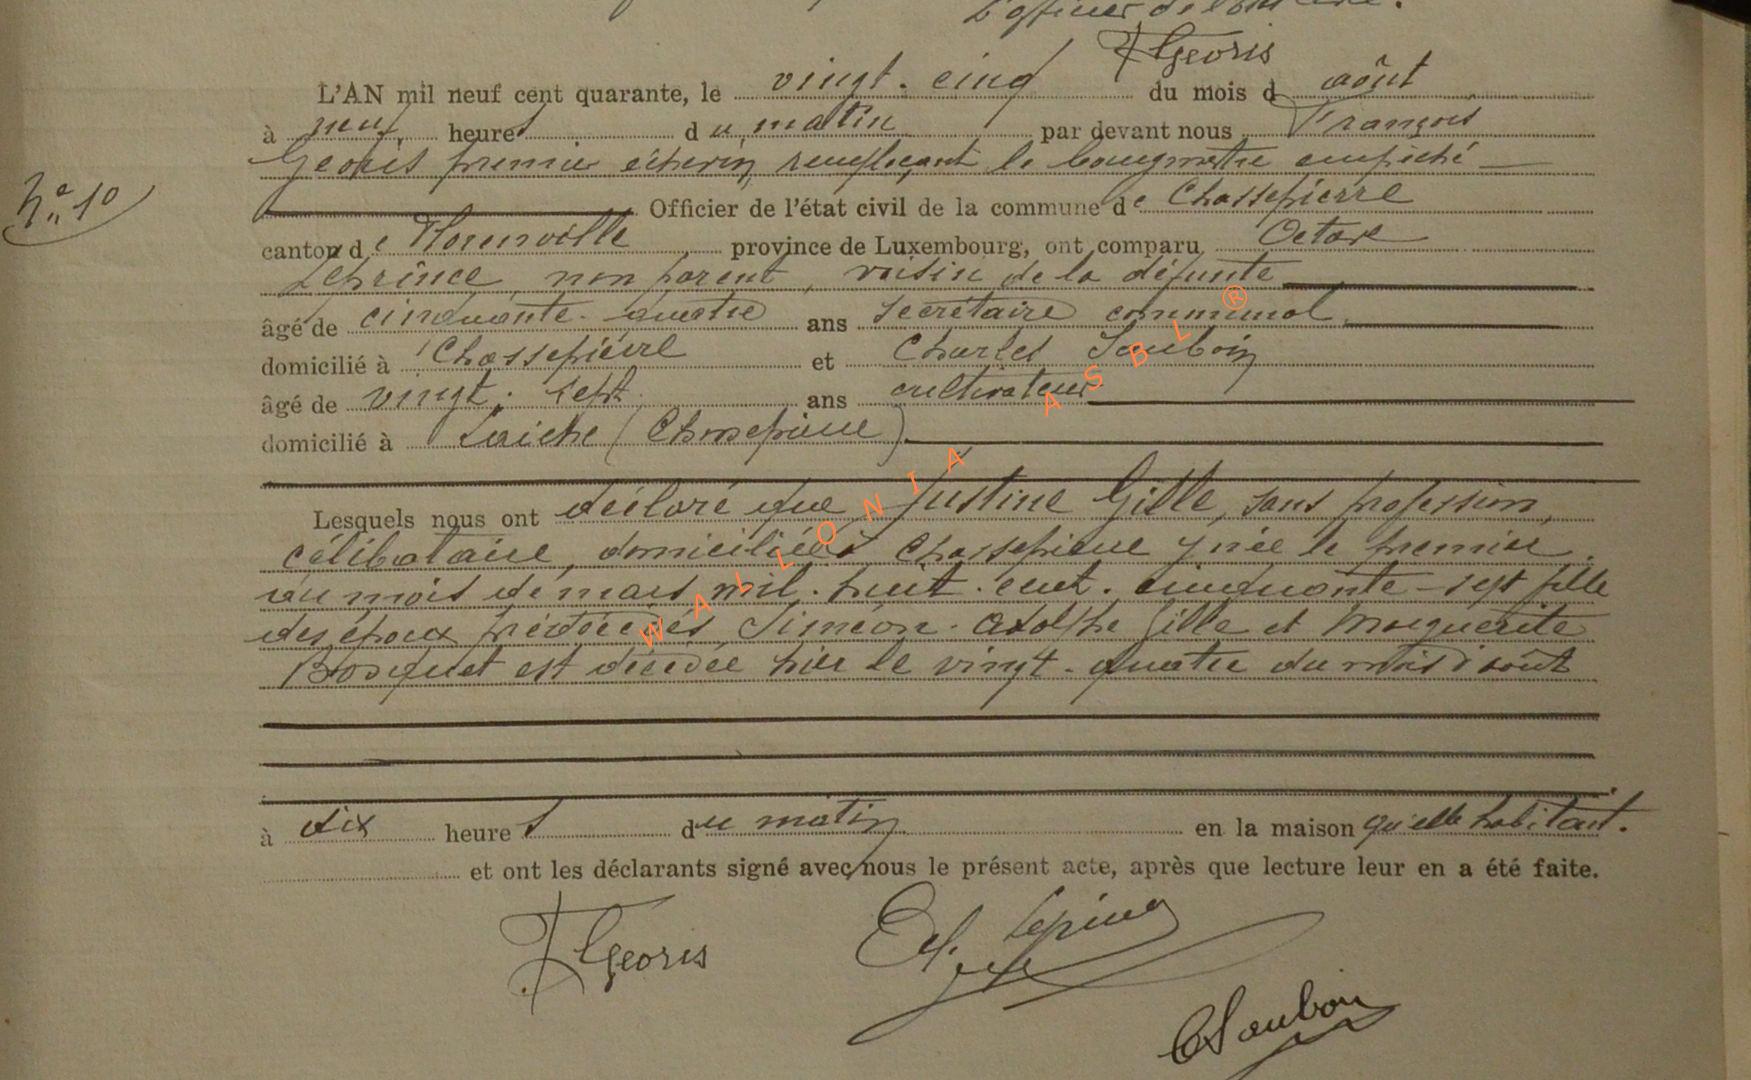 L'officier de l'état civil.
F Georis
L'AN mil neuf cent quarante, le vingt-cinq du mois d août
à neuf heures du matin par devant nous François
Georis premier échevin, remplaçant le bourgmestre empêché
N° 10
Officier de l'état civil de la commune de Chassepierre
canton de Florenville province de Luxembourg, ont comparu Octave
Leprince, non parent, voisin de la défunte
âgé de cinquante-quatre ans secrétaire communal
domicilié à Chassepierre et Charles Sauboin
âgé de vingt-sept ans cultivateur
domicilié à Laiche (Chassepierre)
Lesquels nous ont déclaré que Justine Gille, sans profession,
célibataire, domiciliée à Chassepierre y née le premier
du mois de mars mil-huit-cent-cinquante-sept fille
des époux prédécédés Siméon-Adolphe Gille et Marguerite
Bosquet est décédée hier le vingt-quatre du mois d'août
à dix heures du matin en la maison qu'elle habitait.
et ont les déclarants signé avec nous le présent acte, après que lecture leur en a été faite.
F Georis
C Sauboin
WALLONIA ASBL ®